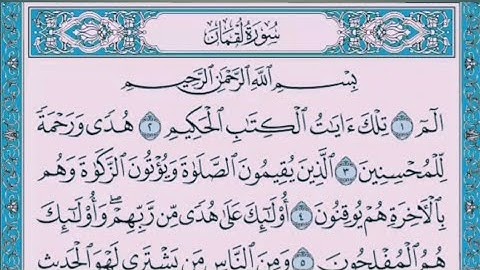 سُورَةُ لُقْمَان
بِسْمِ اللَّهِ الرَّحْمَٰنِ الرَّحِيمِ
الٓمٓ ١ تِلْكَ ءَايَٰتُ ٱلْكِتَٰبِ ٱلْحَكِيمِ ٢ هُدًى وَرَحْمَةً
لِّلْمُحْسِنِينَ ٣ ٱلَّذِينَ يُقِيمُونَ ٱلصَّلَوٰةَ وَيُؤْتُونَ ٱلزَّكَوٰةَ وَهُم
بِٱلْـَٔاخِرَةِ هُمْ يُوقِنُونَ ٤ أُو۟لَٰٓئِكَ عَلَىٰ هُدًى مِّن رَّبِّهِمْ ۖ وَأُو۟لَٰٓئِكَ
هُمُ ٱلْمُفْلِحُونَ ٥ وَمِنَ ٱلنَّاسِ مَن يَشْتَرِى لَهْوَ ٱلْحَدِيثِ